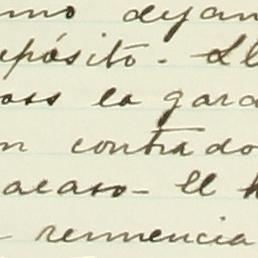 mo dejan
epósito. El
oss la gara
n contrado
acaso - El h
renuencia